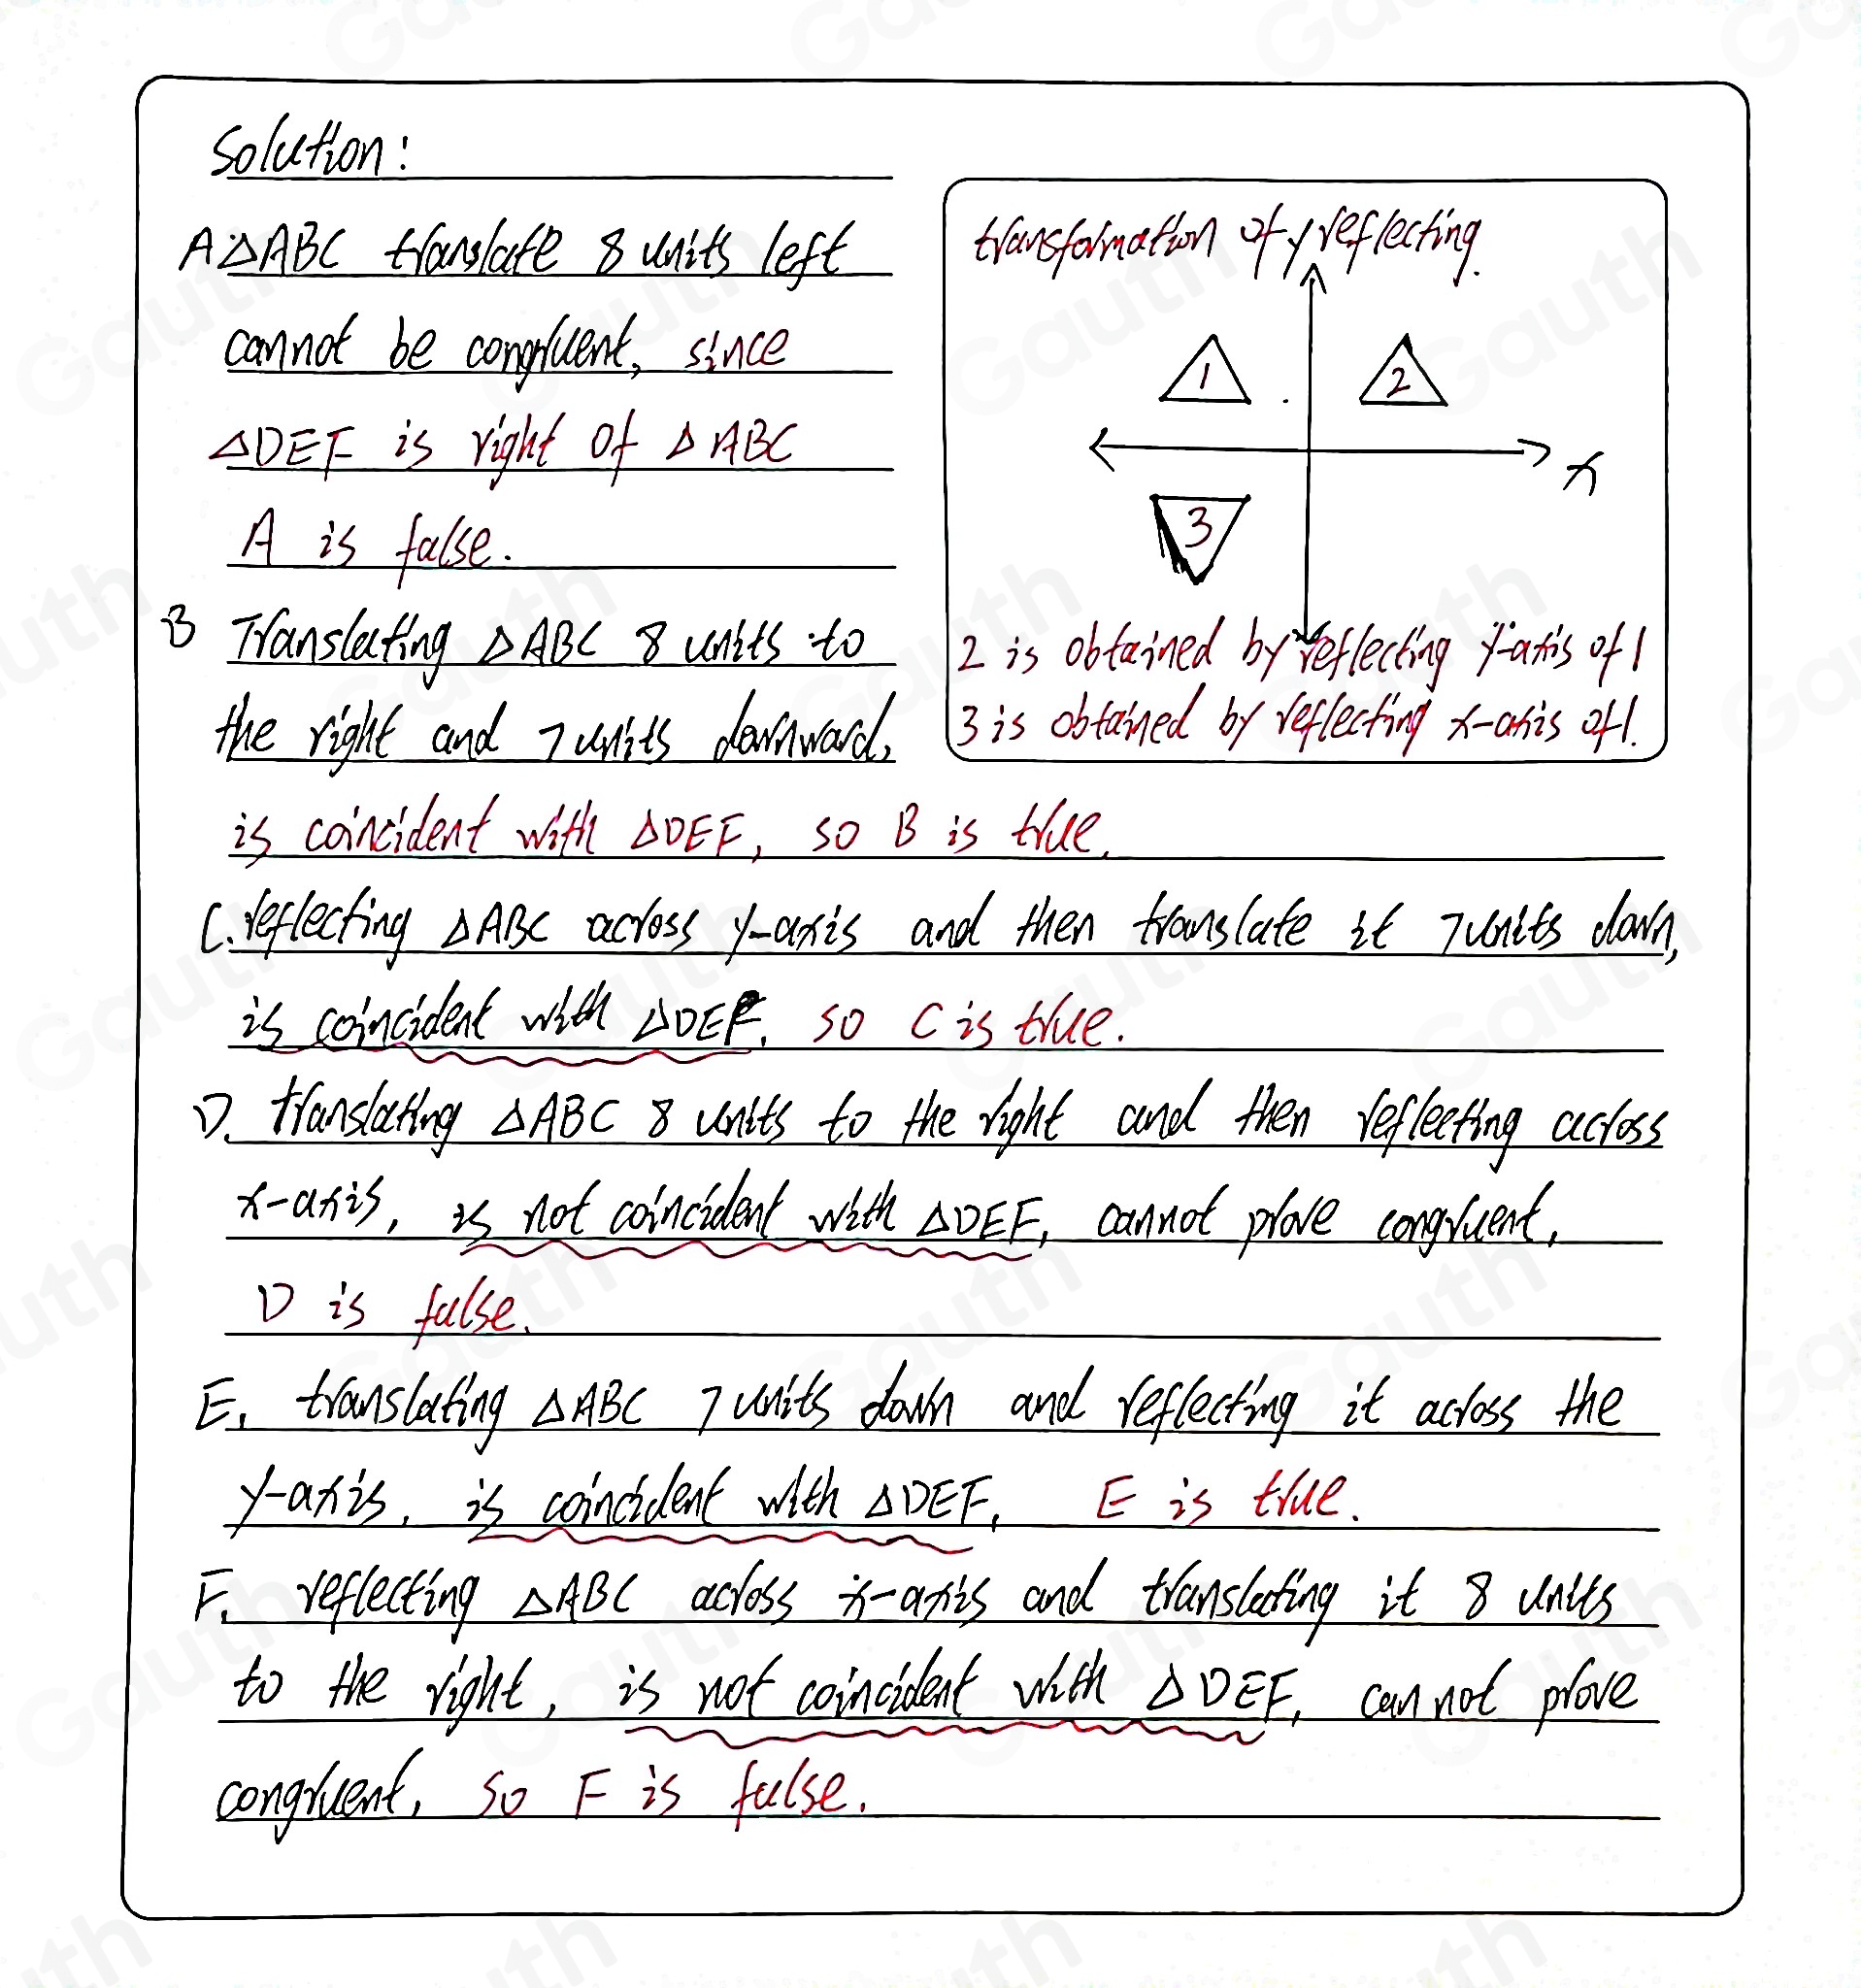 Solution:
A △ABC translate 8 units left
cannot be congruent, since
△DEF is right of △ABC
A is false.
B Translating △ABC 8 units to
the right and 7 units downward,
is coincident with △DEF, so B is true.
C. reflecting △ABC across y-axis and then translate it 7 units down,
is coincident with △DEF, so C is true.
D. translating △ABC 8 units to the right and then reflecting across
x-axis, is not coincident with △DEF, cannot prove congruent,
D is false.
E, translating △ABC 7 units down and reflecting it across the
y-axis, is coincident with △DEF, E is true.
F. reflecting △ABC across x-axis and translating it 8 units
to the right, is not coincident with △DEF, cannot prove
congruent, so F is false.
transformation of reflecting.
y
1
2
x
3
2 is obtained by reflecting y-axis of 1
3 is obtained by reflecting x-axis of 1.
Gauth